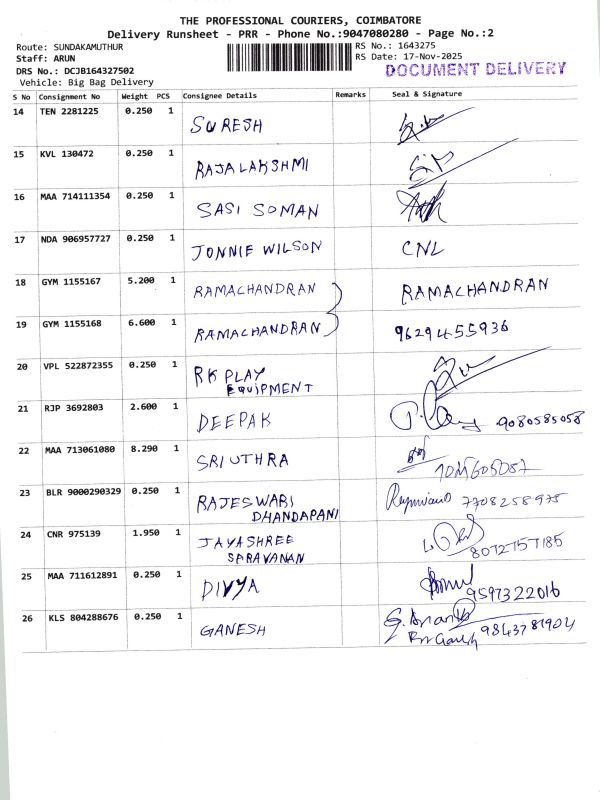 THE PROFESSIONAL COURIERS, COIMBATORE
Delivery Runsheet - PRR - Phone No.:9047080280 - Page No.:2
Route: SUNDAKAMUTHUR
RS No.: 1643275
Staff: ARUN
RS Date: 17-Nov-2025
DRS No.: DCJB164327502
DOCUMENT DELIVERY
Vehicle: Big Bag Delivery
S No Consignment No Weight PCS Consignee Details Remarks Seal & Signature
14 TEN 2281225 0.250 1 SURESH
15 KVL 130472 0.250 1 RAJALAKSHMI
16 MAA 714111354 0.250 1 SASI SOMAN
17 NDA 906957727 0.250 1 JONNIE WILSON CNL
18 GYM 1155167 5.200 1 RAMACHANDRAN RAMACHANDRAN
19 GYM 1155168 6.600 1 RAMACHANDRAN 9629455936
20 VPL 522872355 0.250 1 RK PLAY
EQUIPMENT
21 RJP 3692803 2.600 1 DEEPAK 9080585058
22 MAA 713061080 8.290 1 SRIUTHRA
23 BLR 9000290329 0.250 1 RAJESWARI 7708258975
DHANDAPANI
24 CNR 975139 1.950 1 JAYASHREE
SARAVANAN 8072757185
25 MAA 711612891 0.250 1 DIVYA 9597322016
26 KLS 804288676 0.250 1 GANESH 9843781904